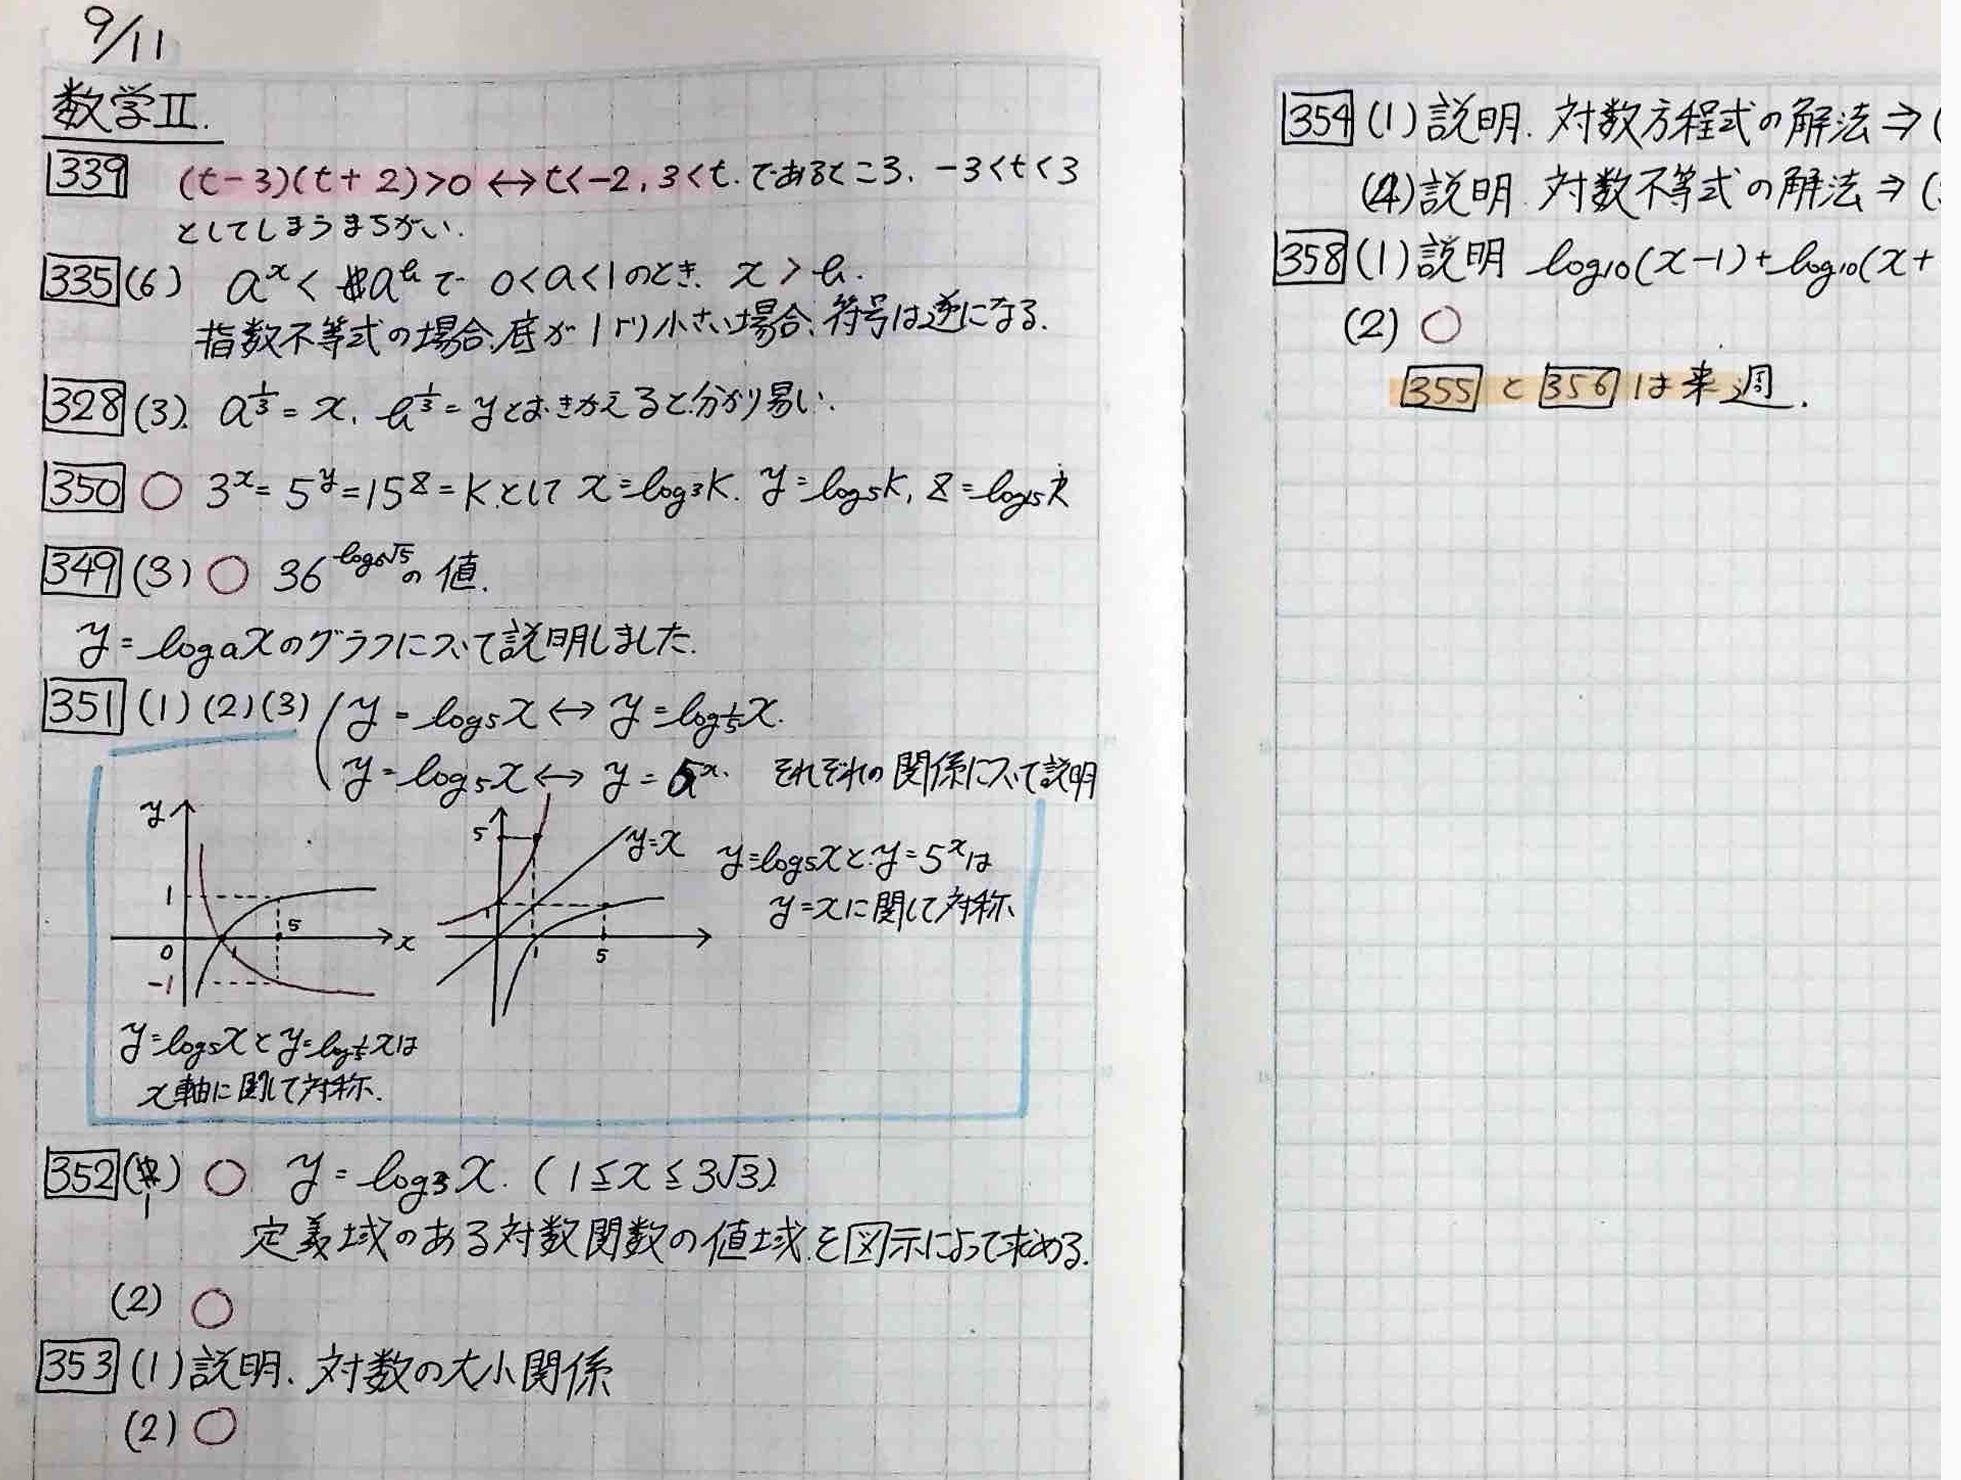 9/11
数学Ⅱ.
339 (t-3)(t+2)>0 ↔ t<-2, 3<t. であるところ、-3<t<3
としてしまうまちがい.
335 (6) a^x < a^b で 0<a<1のとき、x > b.
指数不等式の場合、底が1より小さい場合、符号は逆になる.
328 (3). a^{1/3} = x, b^{1/3} = y とおきかえると分かり易い.
350 ○ 3^x = 5^y = 15^z = k として x = log_3 k. y = log_5 k, z = log_15 k
349 (3) ○ 36^{log_6 √5} の値.
y = log_a x のグラフについて説明しました.
351 (1)(2)(3) ( y = log_5 x ↔ y = log_{1/5} x.
y = log_5 x ↔ y = 5^x. それぞれの関係について説明
y
1
0
-1
1
5
x
y=log_5 x と y=log_{1/5} x は
x軸に関して対称.
5
1
1
5
y=x
y=log_5 x と y=5^x は
y=x に関して対称
352 (1) ○ y = log_3 x. (1≦x≦3√3)
定義域のある対数関数の値域を図示によって求める.
(2) ○
353 (1) 説明. 対数の大小関係
(2) ○
354 (1) 説明. 対数方程式の解法 ⇒ (
(4) 説明. 対数不等式の解法 ⇒ (
358 (1) 説明 log_10 (x-1) + log_10 (x+
(2) ○
355 と 356 は来週.